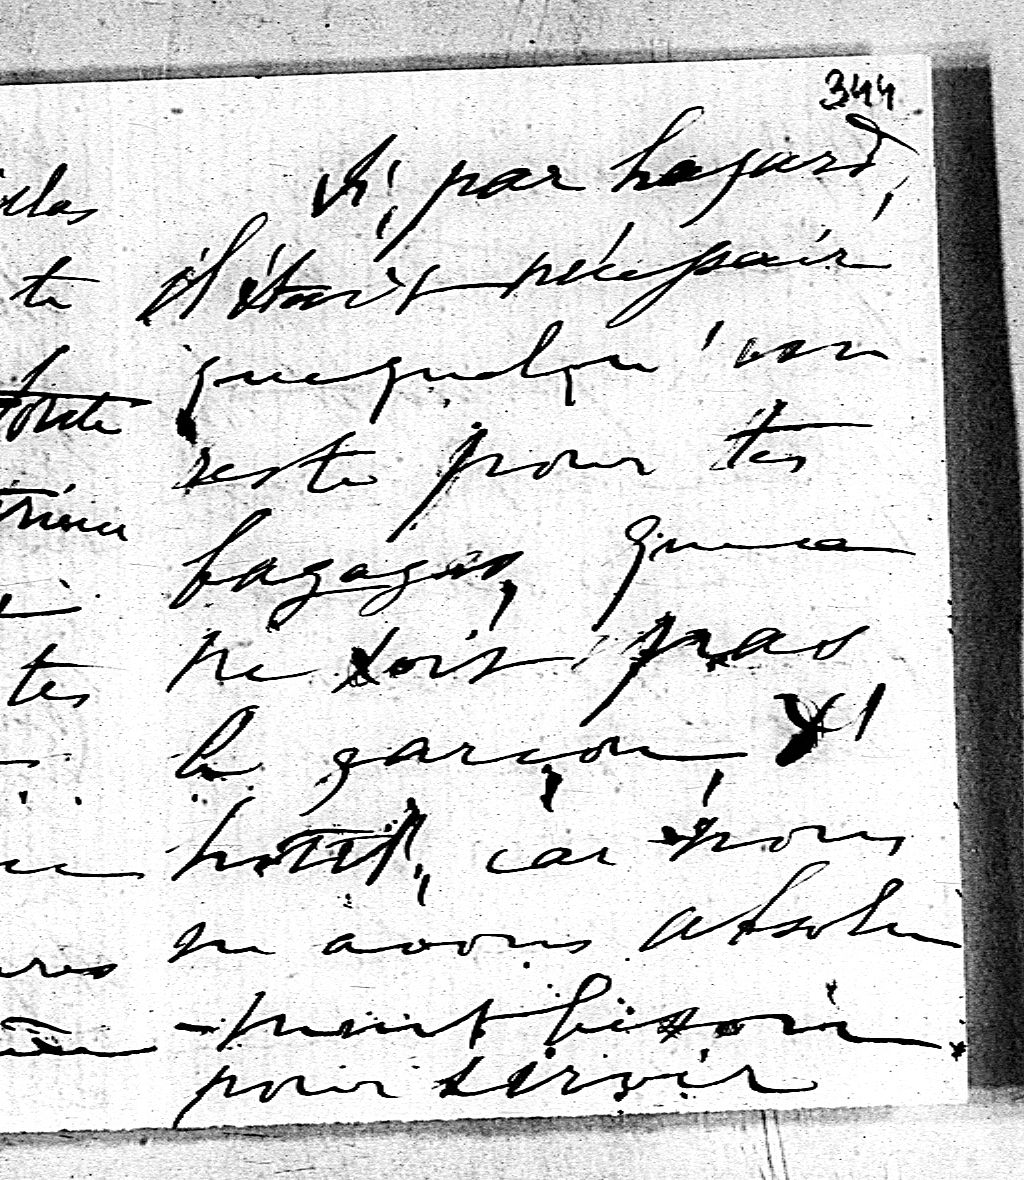 344
Si, par hasard,
il était nécessair
que quelqu'un
reste pour tes
bagages, que ce
ne soit pas
le garçon d'
hotel, car nous
en avons absolu
-ment besoin
pour servir
te
toute
tes